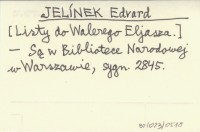 JELÍNEK Edvard
[Listy do Walerego Eljasza.]
— Są w Bibliotece Narodowej
w Warszawie, sygn. 2845.